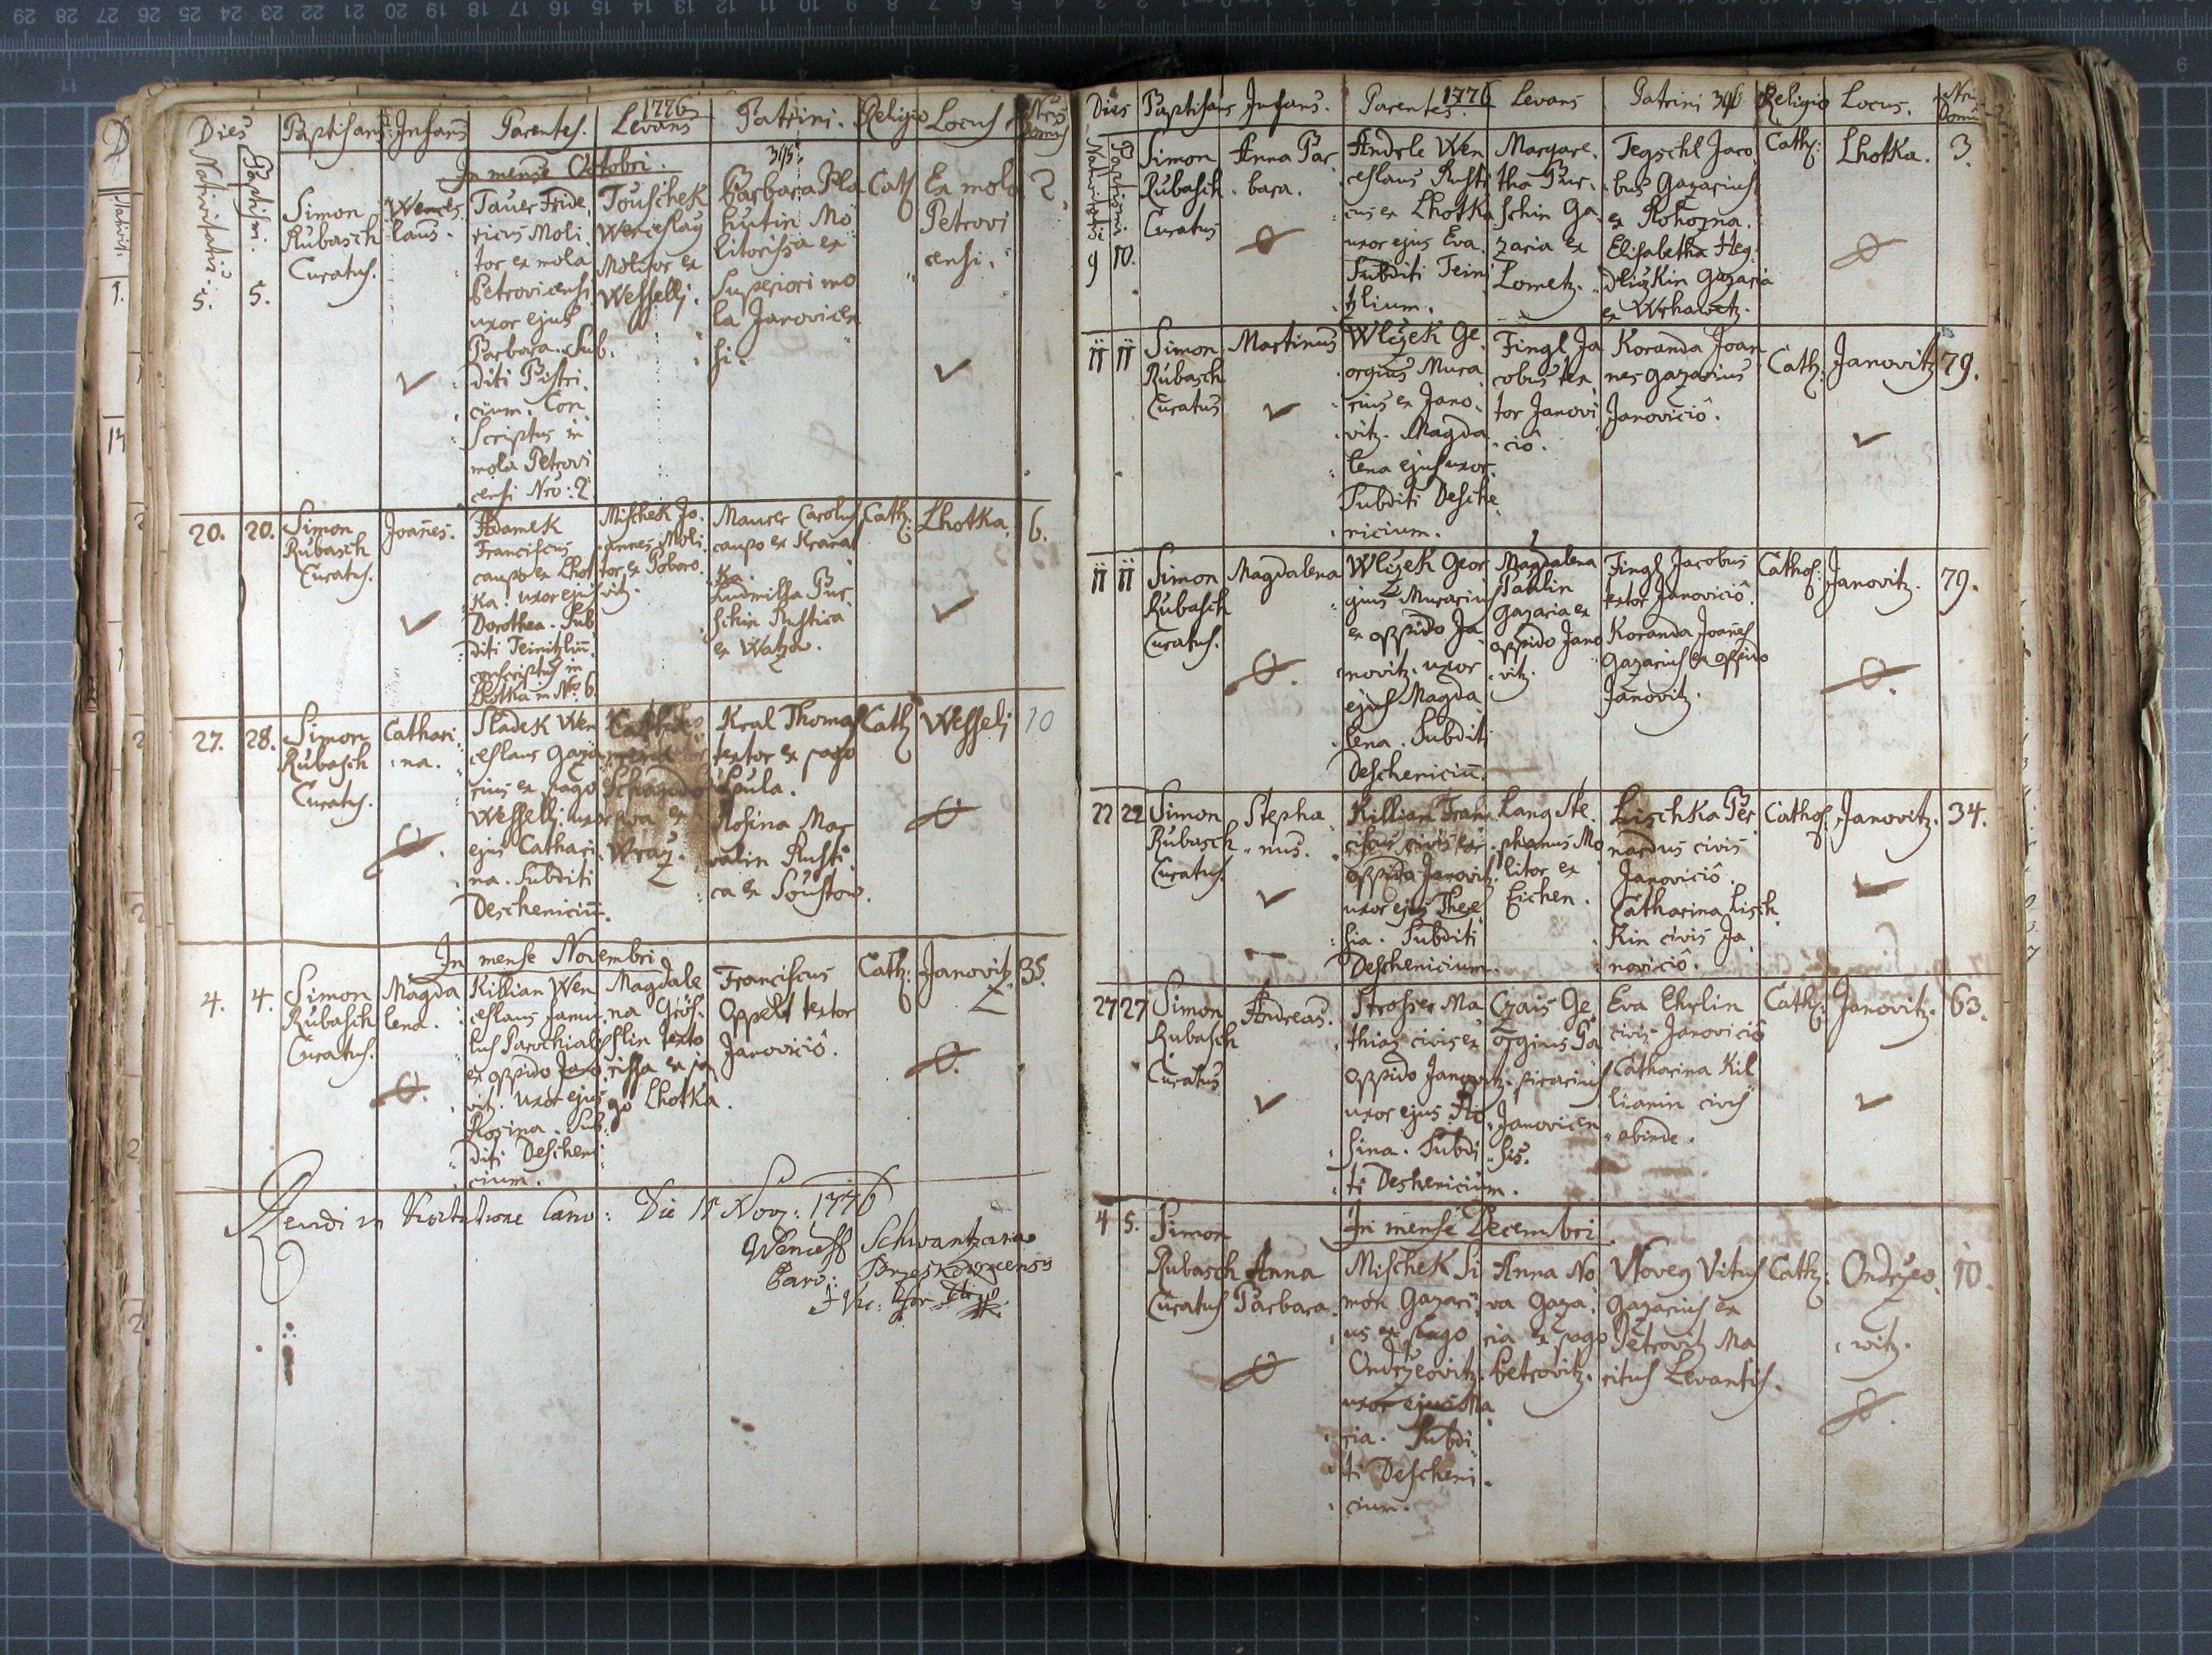 1776
Dies Baptisans Infans Parentes. Levans Patrini. Religio Locus Nrus Domus
Nativitatis. Baptismi.
395
In mense Octobri.
5. 5.
Simon
Rubasch
Curatus.
Wences
laus.
Tauer Fride
ricus Moli
tor ex mola
Petrovicensi
uxor ejus
Barbara. Sub
diti Bistri
cium. Con
scriptus in
mola Petrovi
censi Nro: 2
Touschek
Wenceslaus
Molitor ex
Wesselj.
Barbara Pla
hutin Mo
litorissa ex
Superiori mo
la Janovicen
si.
Cath
Ex mola
Petrovi
censi.
2.
20. 20.
Simon
Rubasch
Curatus.
Joanes.
Adamek
Franciscus
caupo ex Lhot
ka. uxor ejus
Dorothea. Sub
diti Teinitzliu.
conscriptus in
Lhotka in Nro 6.
Mischek Jo
annes Moli
tor ex Poboro
vitz.
Maurer Carolus
caupo ex
Ludmilla Pur
schin Rustica
ex Watzow.
Cath:
Lhotka.
6.
27. 28.
Simon
Rubasch
Curatus.
Cathari
na.
Sladek Wen
ceslaus Gaza
rius ex pago
Wesselj. uxor
ejus Cathari
na. Subditi
Descheniciu.
ex
Kral Thomas
textor ex pago
Spula.
Rosina Mar
valin Rusti
ca ex Soustow.
Cath
Wesselj
10
In mense Novembri
4. 4.
Simon
Rubasch
Curatus.
Magda
lena.
Killian Wen
ceslaus famu
lus Parochialis
ex oppido Jano
vitz. Uxor ejus
Rosina. Sub
diti Descheni
cium.
Magdale
na Grös
slin texto
rissa ex pa
go Lhotka.
Franciscus
Oppelt textor
Janoviciô.
Cath:
Janovitz.
35.
Vice
Die 15 Nov: 1776
Wencesl Schwantzara
1776
Dies Baptisans Infans. Parentes. Levans Patrini 396 Religio Locus. Nri Domus
Nativitatis Baptismi.
9 10.
Simon
Rubasch
Curatus
Anna Bar
bara.
Andrle Wen
ceslaus Rusti
cus ex Lhotka
uxor ejus Eva
Subditi Teini
tzlium.
Margare
tha Pur
schin Ga
zaria ex
Lometz.
Tegschl Jaco
bus Gazarius
ex Rohozna.
Elisabetha Heg
dluzkin Gazaria
ex Wrhawetz.
Cath:
Lhotka.
3.
11 11
Simon
Rubasch
Curatus
Martinus
Wlczek Ge
orgius Mura
rius ex Jano
vitz. Magda
lena ejus uxor.
Subditi Desche
nicium.
Fingl Ja
cobus tex
tor Janovi
ciô.
Koranda Joan
nes gazarius
Janoviciô.
Cath:
Janovitz
79.
11 11
Simon
Rubasch
Curatus.
Magdalena
Wlczek Geor
gius Murarius
ex oppido Ja
novitz. uxor
ejus Magda
lena. Subditi
Descheniciu.
Magdalena
Paulin
gazaria ex
oppido Jano
vitz.
Fingl Jacobus
textor Janoviciô.
Koranda Joanes
gazarius ex oppido
Janovitz.
Cathol:
Janovitz.
79.
22 22
Simon
Rubasch
Curatus.
Stepha
nus.
Killian Fran
ciscus civis ex
oppido Janovitz.
uxor ejus There
sia. Subditi
Deschenicium.
Lang Ste
phanus Mo
litor ex
Eichen.
Lischka Ber
nardus civis
Janoviciô.
Catharina Lisch
kin civis Ja
noviciô.
Cathol:
Janovitz.
34.
27 27
Simon
Rubasch
Curatus
Andreas.
Strosser Ma
thias civis ex
oppido Janovitz.
uxor ejus Ro
sina. Subdi
ti Deshenicium.
Czais Ge
orgius Pa
pirarius
Janovicen
sis.
Eva Ehrlin
civis Janoviciô
Catharina Kil
lianin civis
abinde.
Cath:
Janovitz.
63.
In mense Decembri.
4 5.
Simon
Rubasch
Curatus
Anna
Barbara.
Mischek Si
mon Gazari
us ex pago
Ondrzeovitz.
uxor ejus Ma
ria. Subdi
ti Descheni
cium.
Anna No
va Gaza
ria ex pago
Petrovitz.
Novey Vitus
Gazarius ex
Petrovitz Ma
ritus Levantis.
Cath:
Ondrzeo
witz.
10.